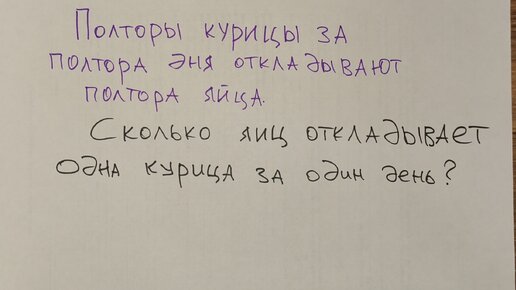 Полторы курицы за
полтора дня откладывают
полтора яйца.
Сколько яиц откладывает
одна курица за один день?